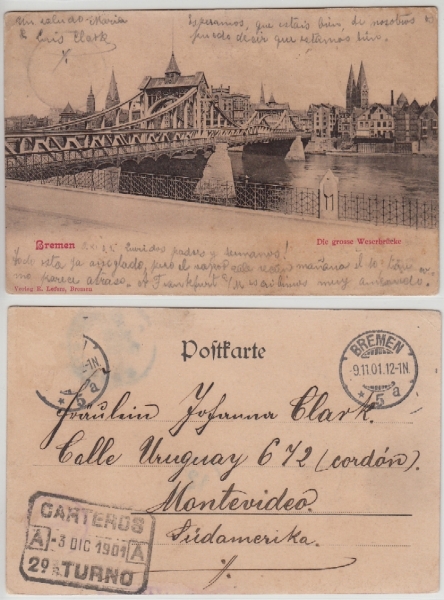 un saludo Maria
& Luis Clark
Esperamos, que estais bien, de nosotros
puedo decir que estamos bien.
11
Bremen
Die grosse Weserbrücke
Queridos padres y hermanos!
Todo esta ya arreglado, pero el vapor sale mañana
me parece atraso. Frankfurt a/M escribimos muy
Verlag R. Lufzu, Bremen
Postkarte
2-1N.
5 a
BREMEN
-9.11.01.12-1N.
* 5 a
Fräulein Johanna Clark.
Calle Uruguay 672 (cordón).
Montevideo.
Südamerika.
CARTEROS
A -3 DIC 1901 A
29º TURNO